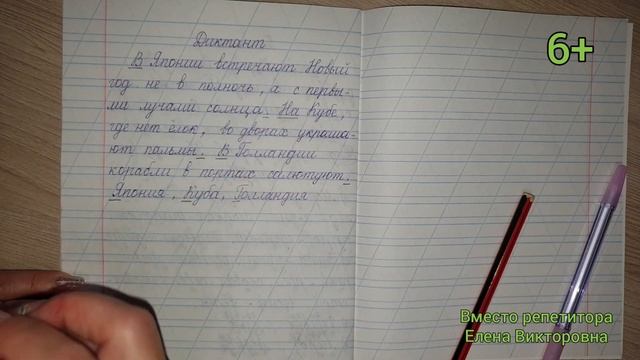 Диктант
В Японии встречают Новый
год не в полночь, а с первы-
ми лучами солнца. На Кубе,
где нет ёлок, во дворах украша-
ют пальмы. В Голландии
корабли в портах салютуют.
Япония, Куба, Голландия
6+
Вместо репетитора
Елена Викторовна